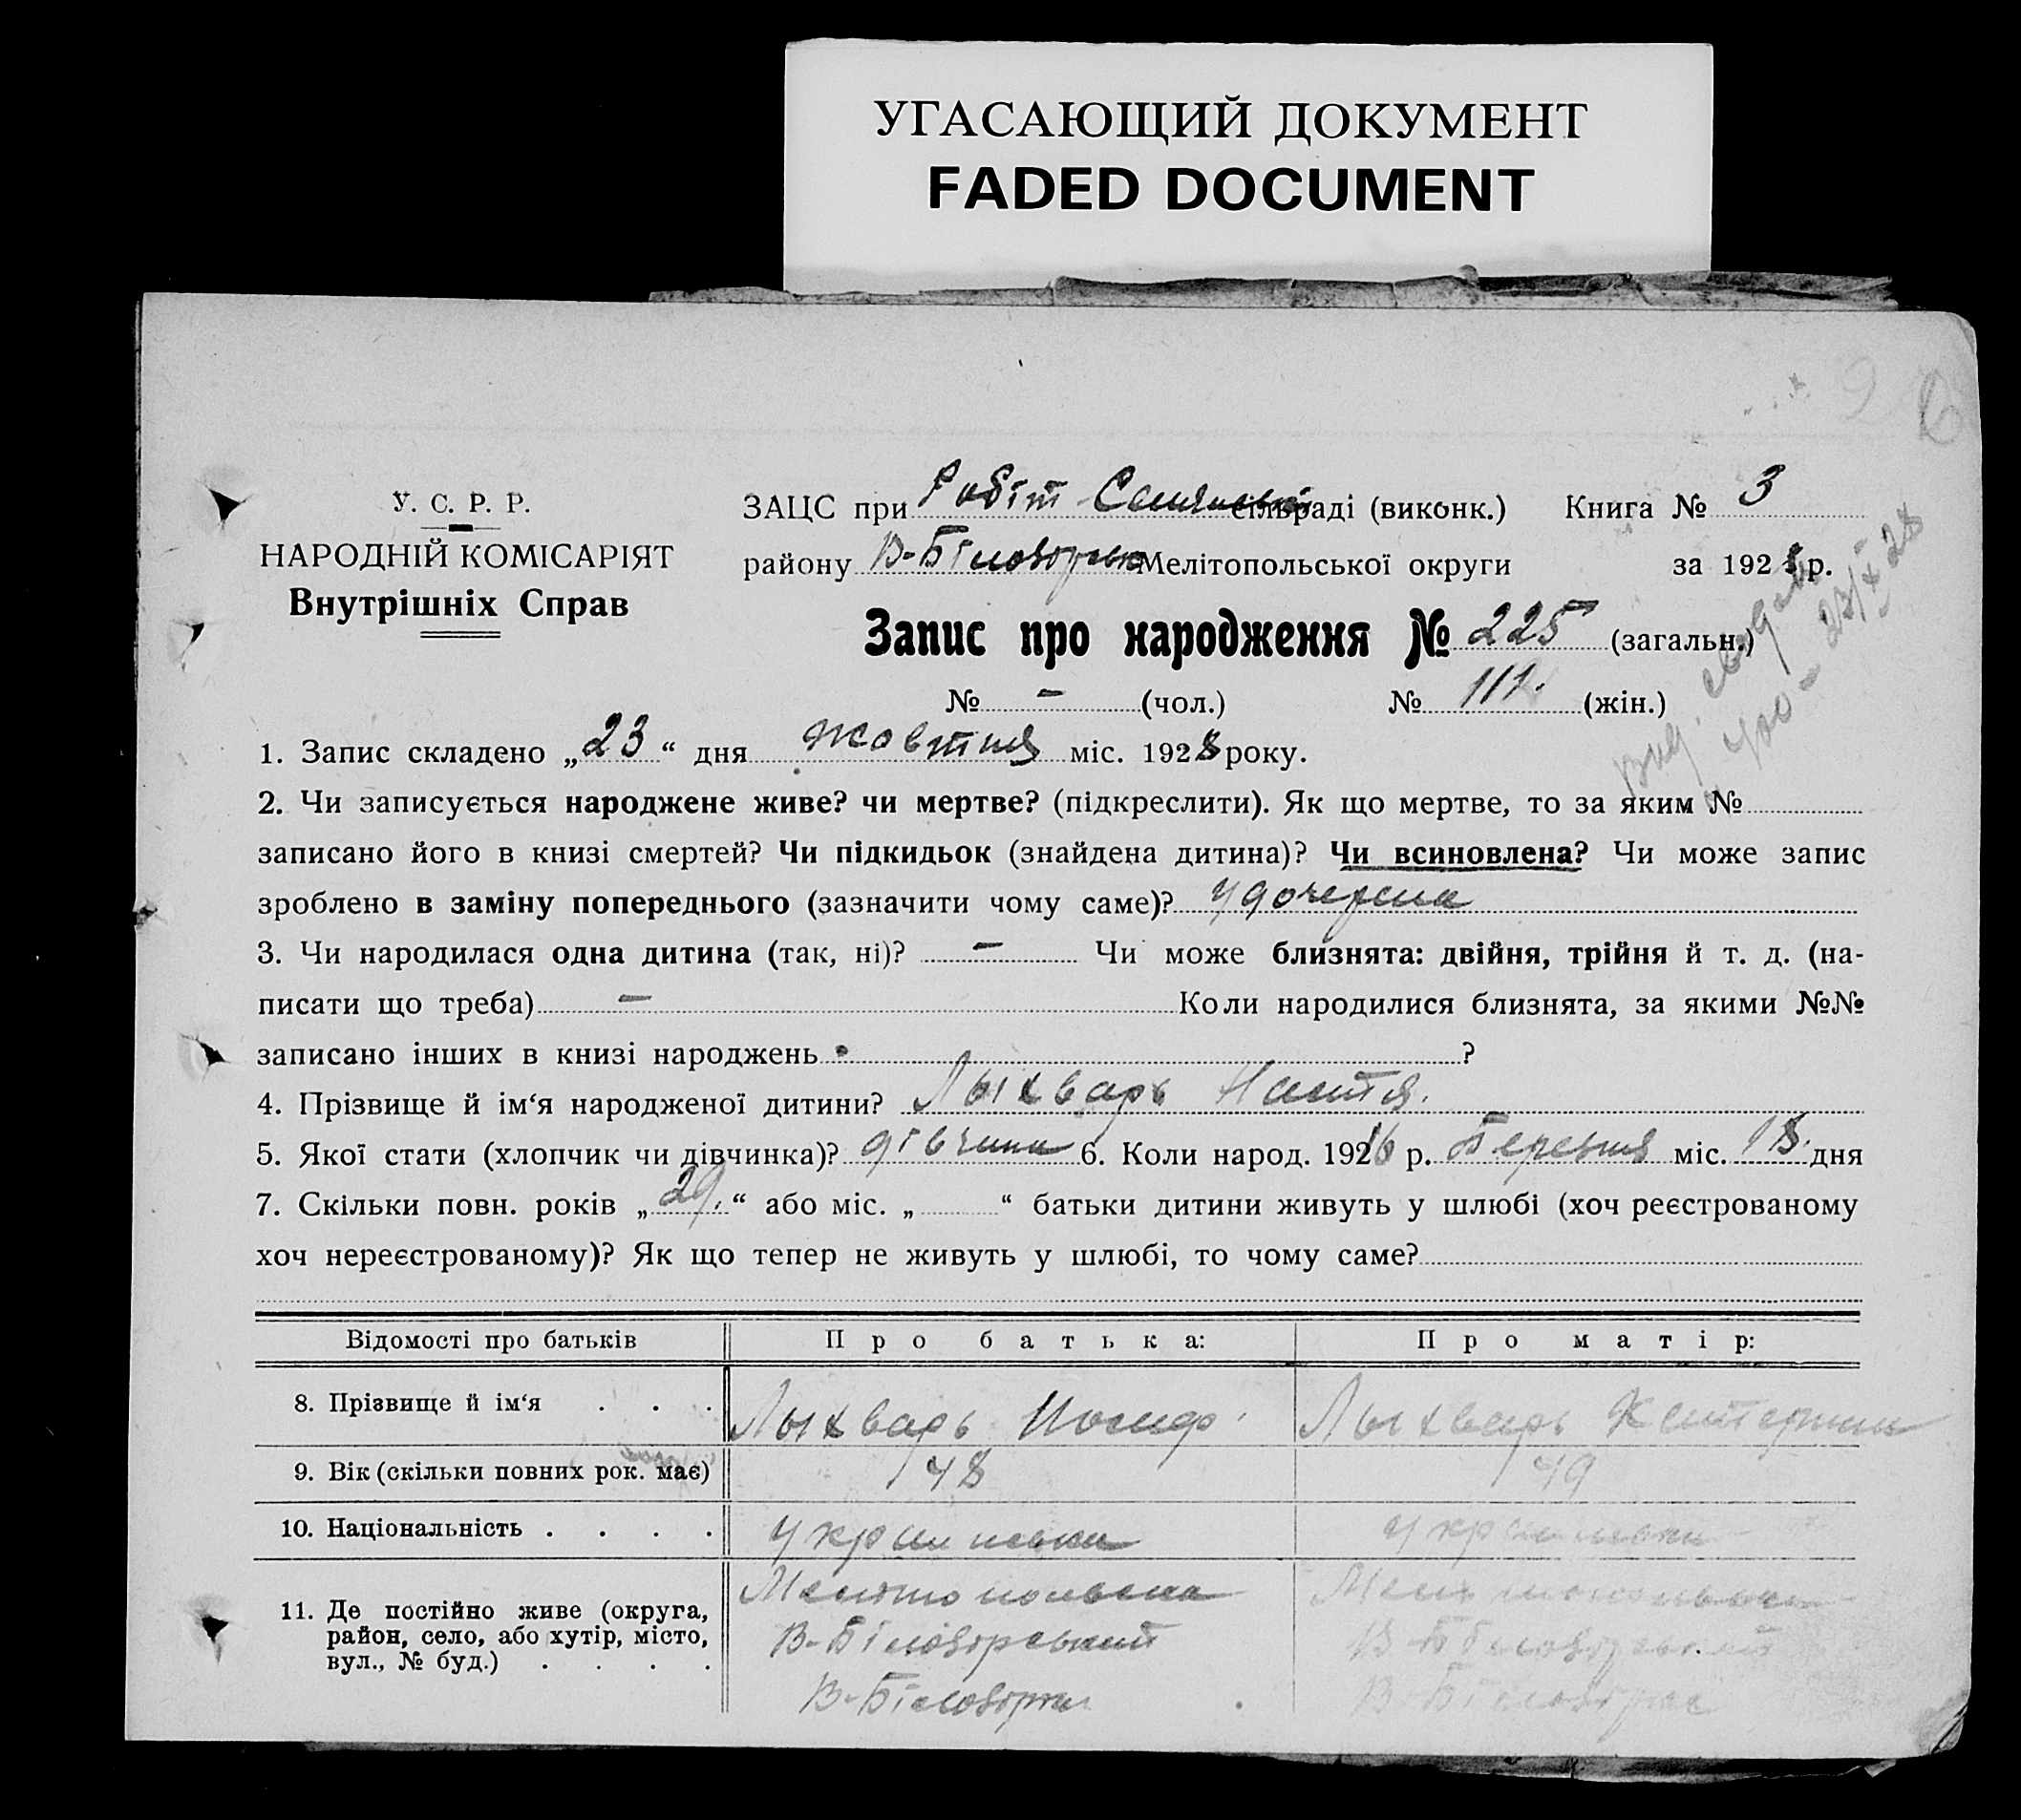 УГАСАЮЩИЙ ДОКУМЕНТ
FADED DOCUMENT
У. С. Р. Р.
НАРОДНІЙ КОМІСАРІЯТ
Внутрішніх Справ
ЗАЦС при Робіт Селянськ сільраді (виконк.) Книга № 3
району В-Білозірськ Мелітопольської округи за 1928 р.
Запис про народження № 225 (загальн.)
№ - (чол.) № 111. (жін.)
23/X 28
1. Запис складено „23“ дня жовтня міс. 1928 року.
2. Чи записується народжене живе? чи мертве? (підкреслити). Як що мертве, то за яким №
записано його в книзі смертей? Чи підкидьок (знайдена дитина)? Чи всиновлена? Чи може запис
зроблено в заміну попереднього (зазначити чому саме)? удочерена
3. Чи народилася одна дитина (так, ні)? - Чи може близнята: двійня, трійня й т. д. (на-
писати що треба) - Коли народилися близнята, за якими №№
записано інших в книзі народжень ?
4. Прізвище й ім‘я народженої дитини? Лыхварь Настя.
5. Якої стати (хлопчик чи дівчинка)? дівчина 6. Коли народ. 1926 р. Березня міс. 18. дня
7. Скільки повн. років „29.“ або міс. „ “ батьки дитини живуть у шлюбі (хоч реєстрованому
хоч нереєстрованому)? Як що тепер не живуть у шлюбі, то чому саме?
Відомості про батьків Про батька: Про матір:
8. Прізвище й ім‘я . . . Лыхварь Иосиф Лыхварь Катерина
9. Вік (скільки повних рок. має) 48 49
10. Національність . . . . українська українська
11. Де постійно живе (округа, район, село, або хутір, місто, вул., № буд.) . . . .
Мелітопольська Мелітопольська
В-Білозірський В-Білозірський
В-Білозірка В-Білозірка